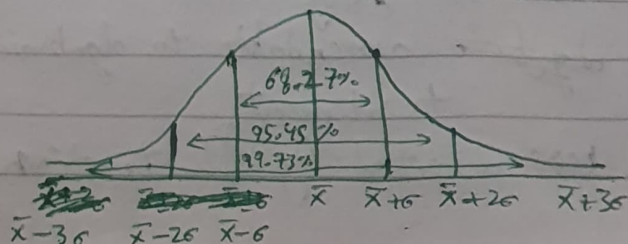 68.27%
95.45%
99.73%
x̄ x̄+σ x̄+2σ x̄+3σ
x̄-3σ x̄-2σ x̄-σ